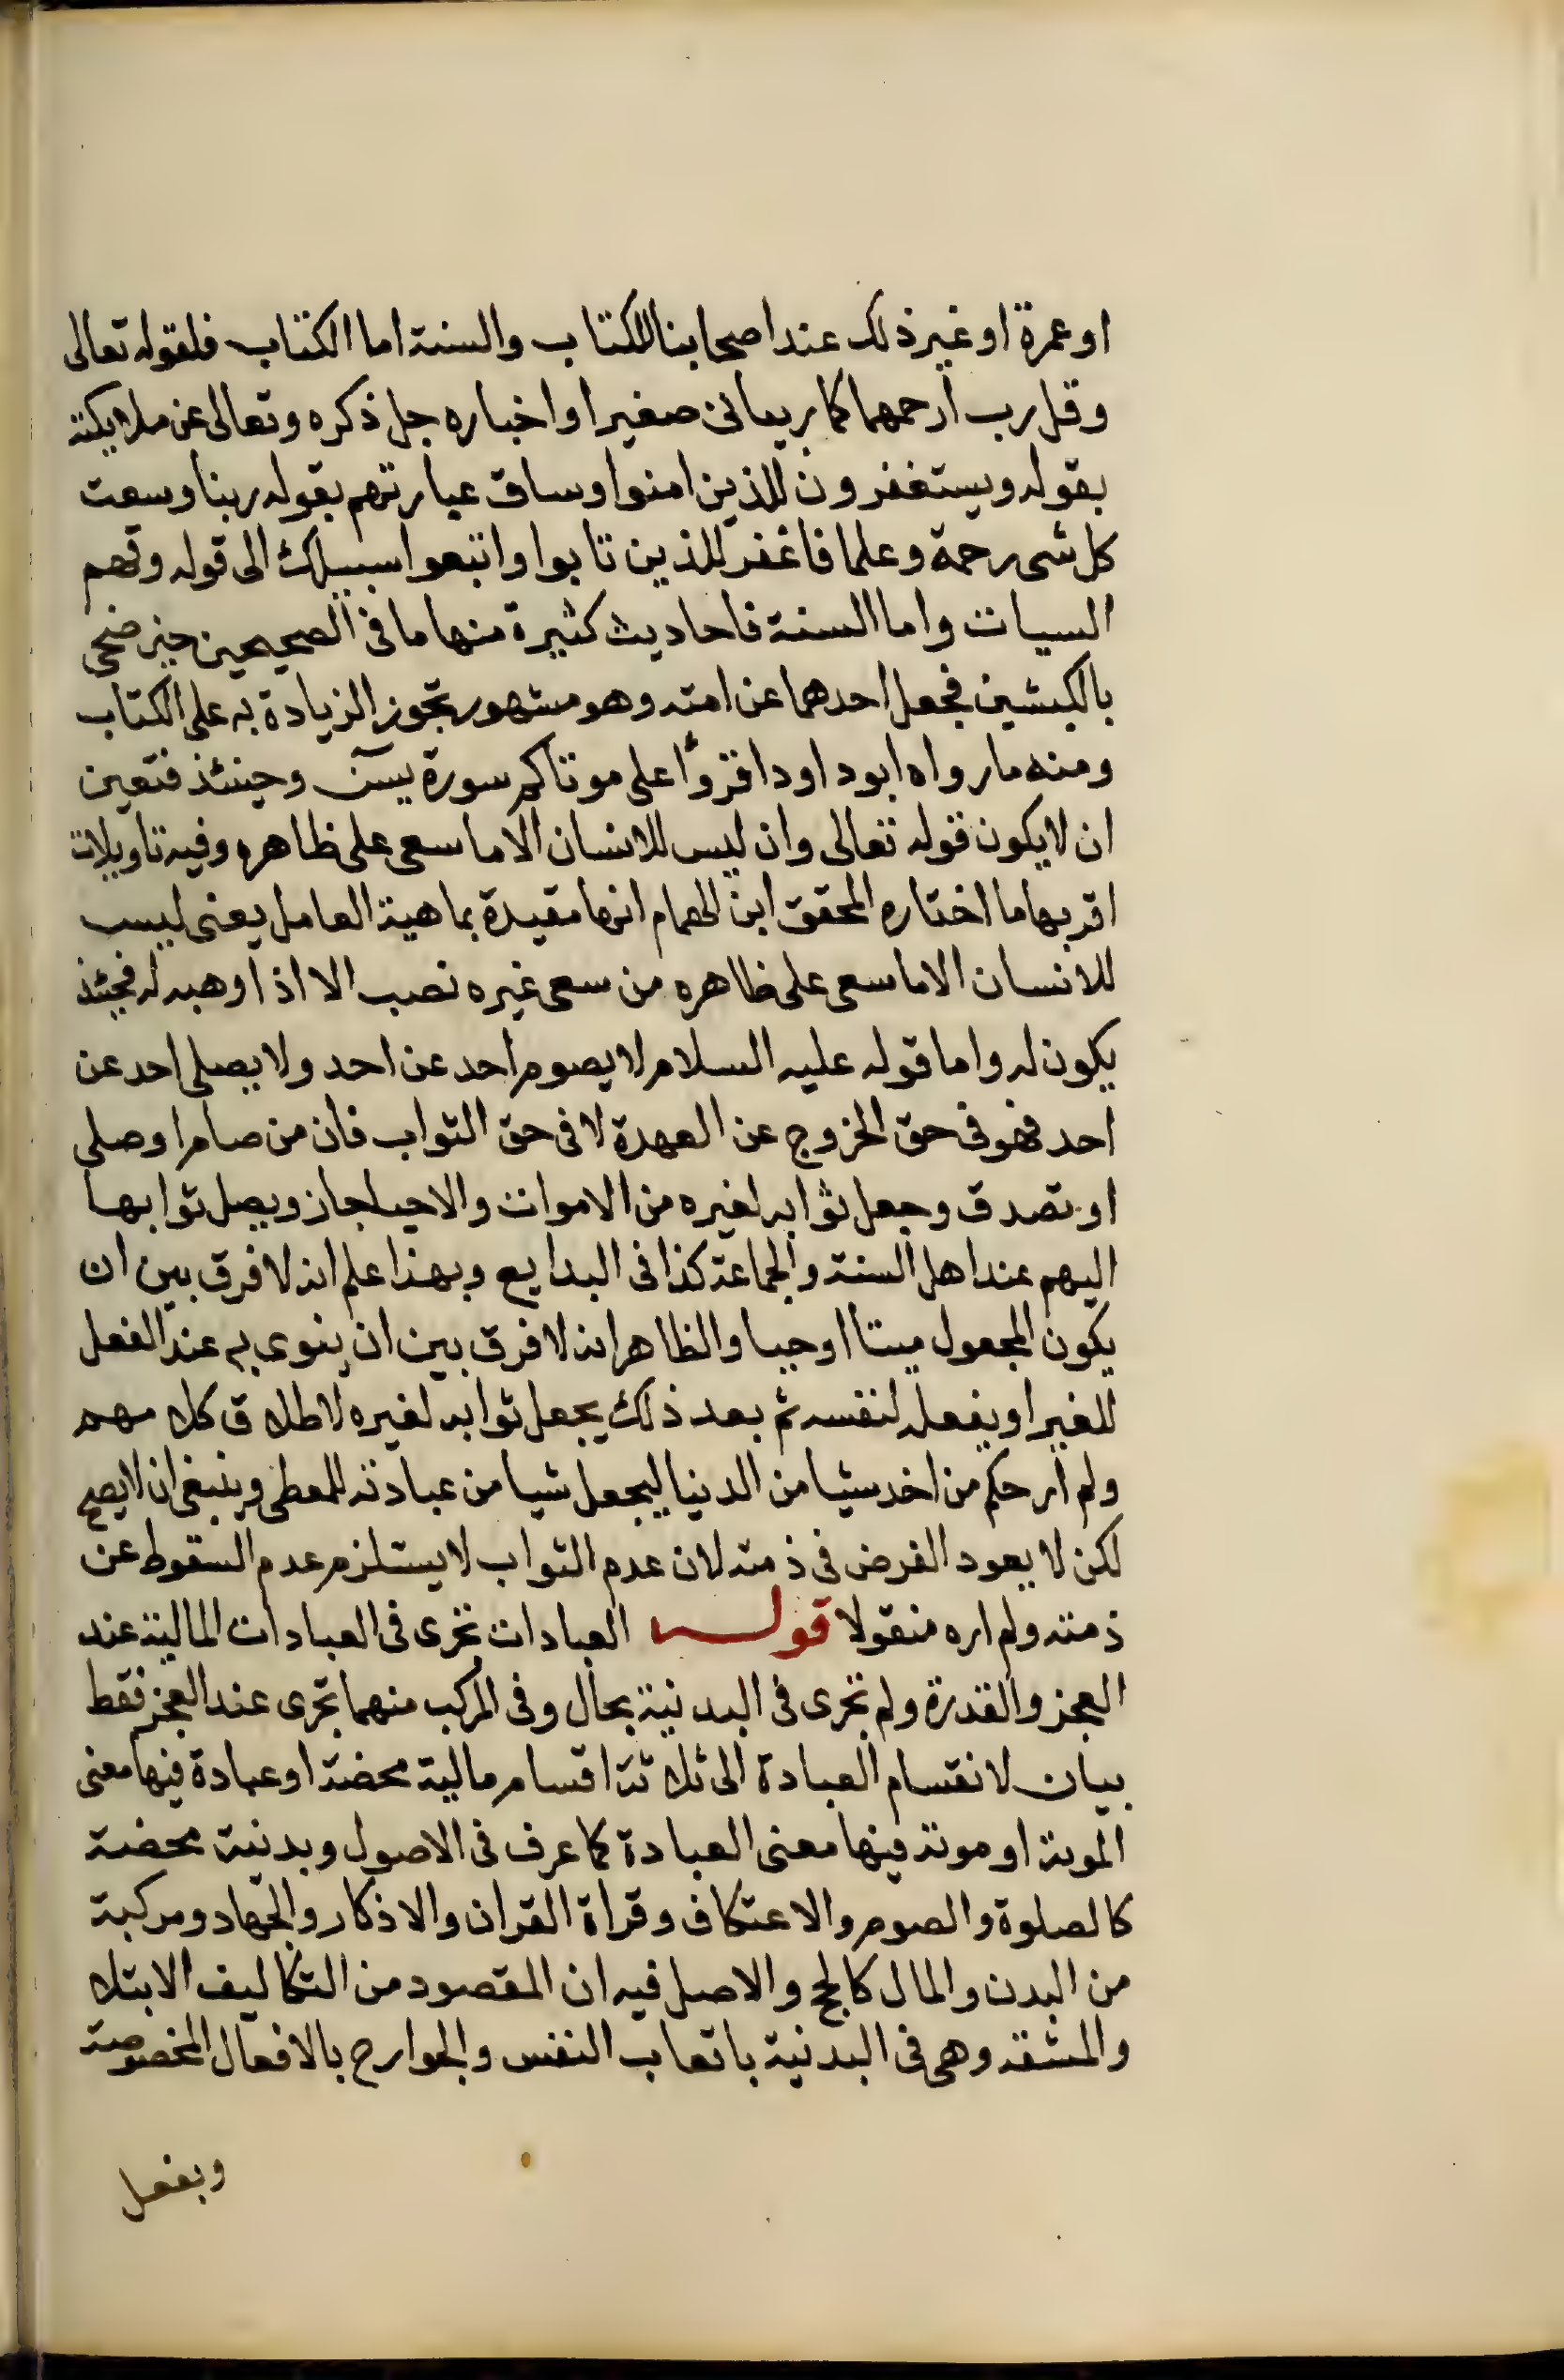 او عمرة او غير ذلك عند اصحابنا للكتاب والسنة اما الكتاب فلقوله تعالى
وقل رب ارحمهما كما ربيانى صغيرا واخباره جل ذكره وتعالى عن ملايكته
بقوله ويستغفرون للذين امنوا وساق عبارتهم بقوله ربنا وسعت
كل شى رحمة وعلما فاغفر للذين تابوا واتبعوا سبيلك الى قوله وقهم
السيات واما السنة فاحاديث كثيرة منها ما فى الصحيحين حين ضحى
بالكبشين فجعل احدهما عن امته وهو مشهور تجوز الزيادة به على الكتاب
ومنه ما رواه ابو داود اقرؤا على موتاكم سورة يسٓ وحينئذ فتعين
ان لا يكون قوله تعالى وان ليس للانسان الا ما سعى على ظاهره وفيه تاويلات
اقربها ما اختاره المحقق ابن الهمام انها مقيدة بما هية العامل يعنى ليس
للانسان الا ما سعى على ظاهره من سعى غيره نصب الا اذا وهبه له فحينئذ
يكون له واما قوله عليه السلام لا يصوم احد عن احد ولا يصلى احد عن
احد فهو فى حق الخروج عن العهدة لا فى حق الثواب فان من صام او صلى
او تصدق وجعل ثوابه لغيره من الاموات والاحيا جاز ويصل ثوابها
اليهم عند اهل السنة والجماعة كذا فى البدايع وبهذا علم انه لا فرق بين ان
يكون المجعول ميتا او حيا والظاهر انه لا فرق بين ان ينوى به عند الفعل
للغير او يفعله لنفسه ثم بعد ذلك يجعل ثوابه لغيره لاطلاق كلامهم
ولم ار حكم من اخد شيا من الدنيا ليجعل شيا من عبادته للمعطى وينبغى ان لا يصح
لكن لا يعود الفرض فى ذمته لان عدم الثواب لا يستلزم عدم السقوط عن
ذمته ولم اره منقولا قوله العبادات تجرى فى العبادات المالية عند
العجز والقدرة ولم تجرى فى البدنية بحال وفى المركب منهما تجرى عند العجز فقط
بيان لانقسام العبادة الى ثلاثة اقسام مالية محضة او عبادة فيها معنى
المونة او مونة فيها معنى العبادة كما عرف فى الاصول وبدنية محضة
كالصلوة والصوم والاعتكاف وقراة القران والاذكار والجهاد ومركبة
من البدن والمال كالحج والاصل فيه ان المقصود من التكاليف الابتلا
والمشقة وهى فى البدنية باتعاب النفس والجوارح بالافعال المخصوصة
وبفعل